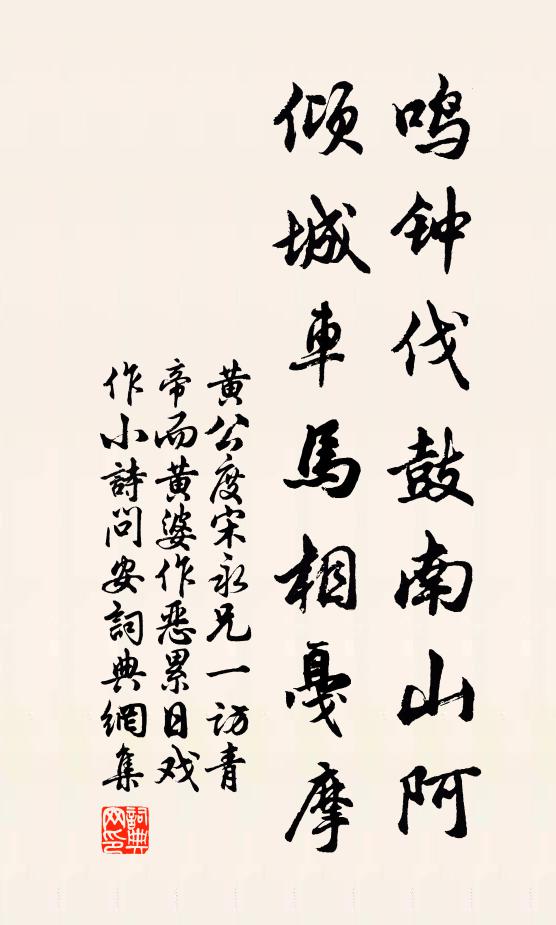 鸣钟伐鼓南山阿
倾城車馬相戛摩
黄公度宋永兄一访青
帝而黄婆作恶累日戏
作小詩问安詞典網集
詞典
网印